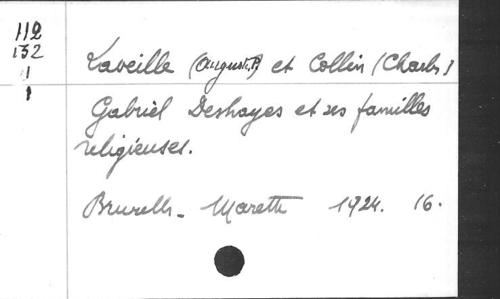 112
132
1
1
Laveille (August.P) et Collin (Charles)
Gabriel Deshayes et ses familles
religieuses.
Bruxelles - Marette 1924. 16.